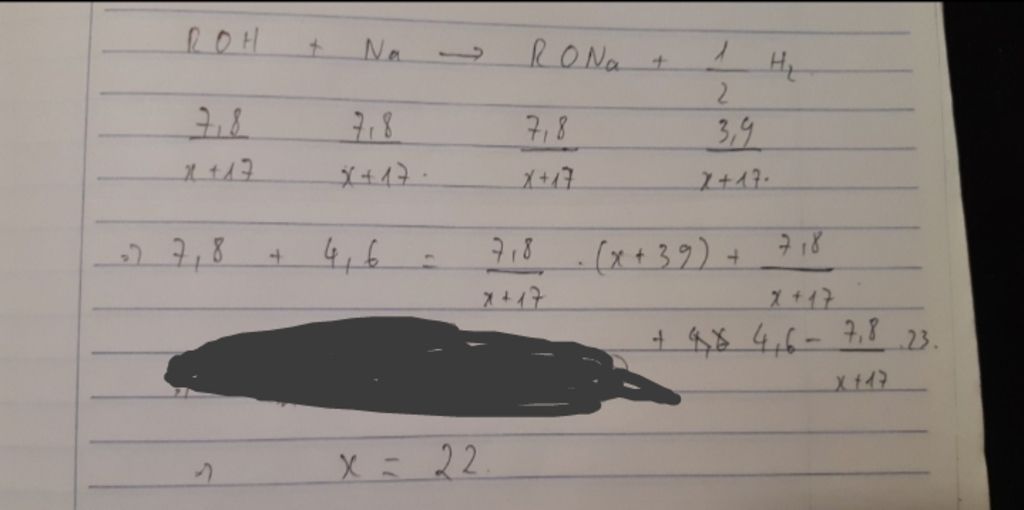 ROH + Na → RONa + 1/2 H₂
7,8/x+17 7,8/x+17. 7,8/x+17 3,9/x+17.
=> 7,8 + 4,6 = 7,8/x+17 .(x+39) + 7,8/x+17
+ 4,6 - 7,8/x+17 .23.
=> x = 22.